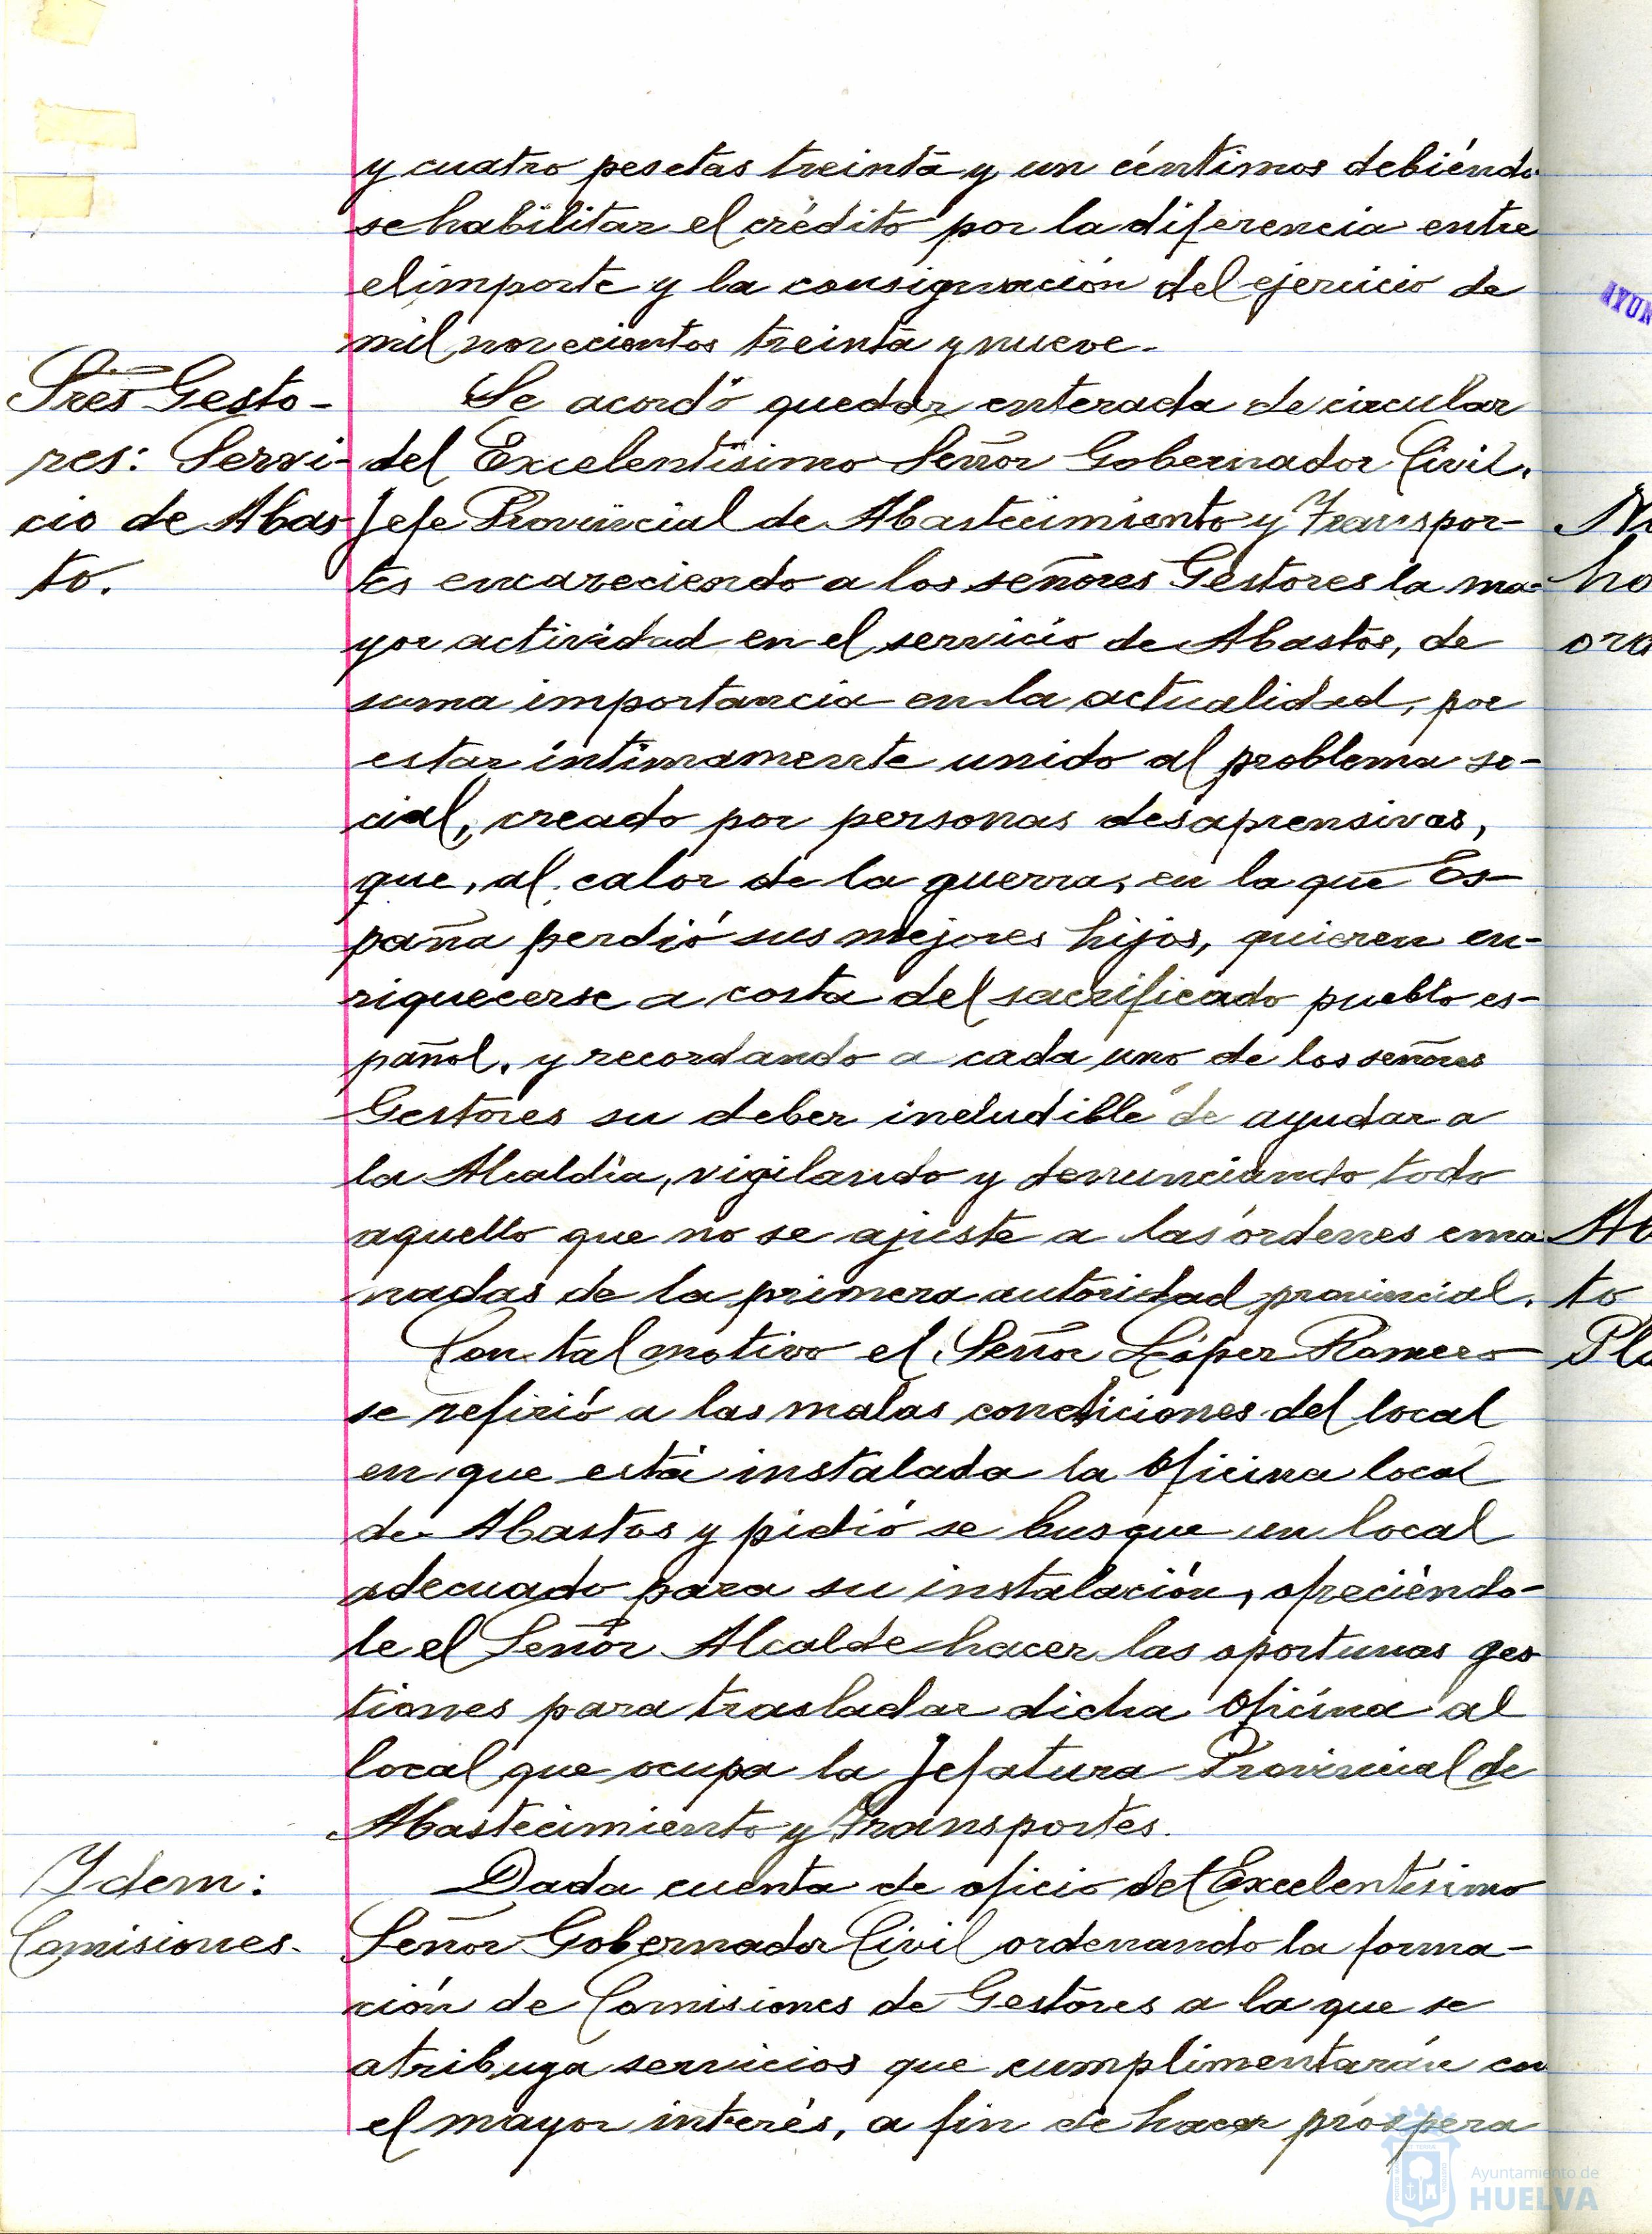 y cuatro pesetas treinta y un céntimos debiéndo
se habilitar el crédito por la diferencia entre
el importe y la consignación del ejercicio de
mil novecientos treinta y nueve.
Sres Gesto-
res: Servi-
cio de Abas
to.
Se acordó quedar enterada de circular
del Excelentísimo Señor Gobernador Civil,
Jefe Provincial de Abastecimiento y Transpor-
tes encareciendo a los señores Gestores la ma-
yor actividad en el servicio de Abastos, de
suma importancia en la actualidad, por
estar íntimamente unido al problema so-
cial, creado por personas desaprensivas,
que, al calor de la guerra, en la que Es-
paña perdió sus mejores hijos, quieren en-
riquecerse a costa del sacrificado pueblo es-
pañol, y recordando a cada uno de los señores
Gestores su deber ineludible de ayudar a
la Alcaldía, vigilando y denunciando todo
aquello que no se ajuste a las órdenes ema
nadas de la primera autoridad provincial.
Con tal motivo el Señor López Romero
se refirió a las malas condiciones del local
en que está instalada la Oficina local
de Abastos y pidió se busque un local
adecuado para su instalación, ofreciéndo-
le el Señor Alcalde hacer las oportunas ges
tiones para trasladar dicha Oficina al
local que ocupa la Jefatura Provincial de
Abastecimiento y Transportes.
Ydem:
Comisiones.
Dada cuenta de oficio del Excelentísimo
Señor Gobernador Civil ordenando la forma-
ción de Comisiones de Gestores a la que se
atribuya servicios que cumplimentarán con
el mayor interés, a fin de hacer próspera
AYUN
ho
ora
to
Ayuntamiento de
HUELVA